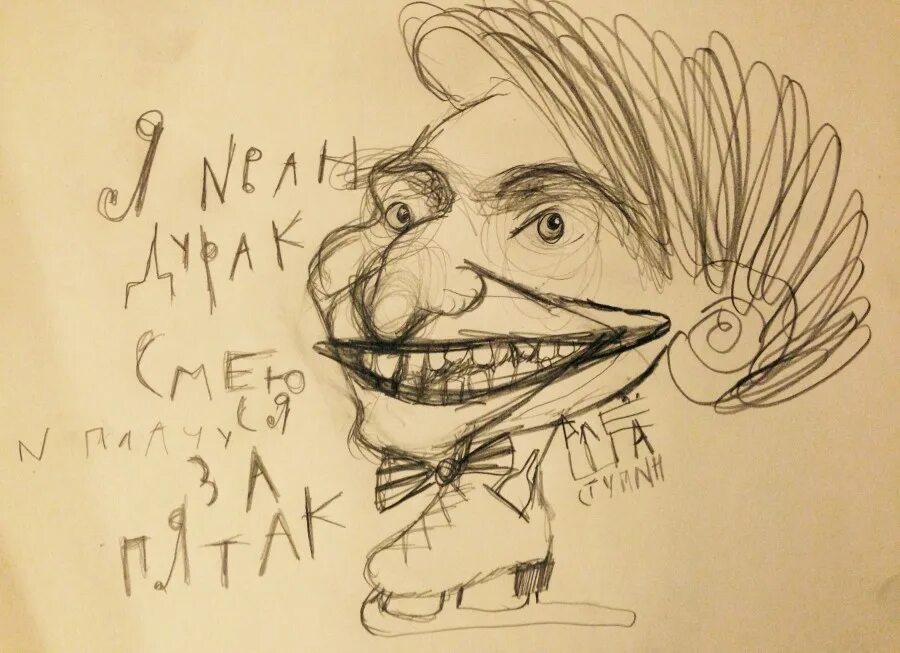 Я ИВАН
ДУРАК
СМЕЮ
СЯ
И ПЛАЧУ
ЗА
ПЯТАК
СТУПИН